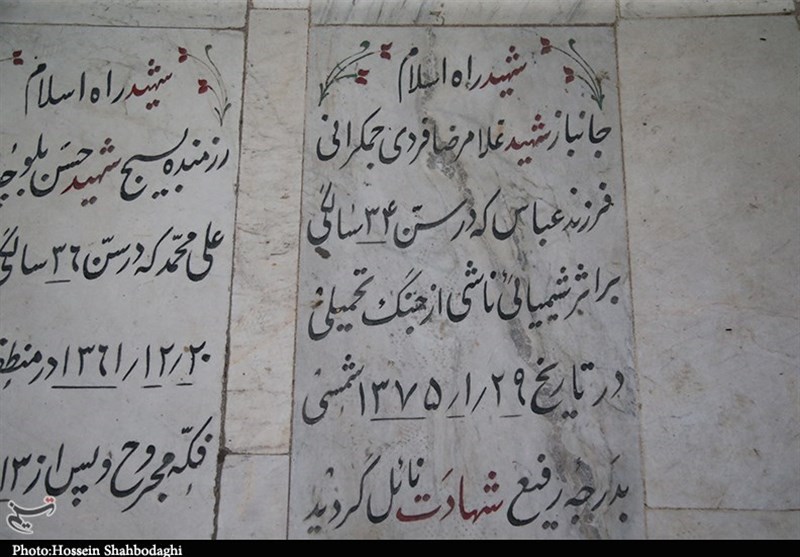 شهید راه اسلام
جانباز شهید غلامرضا فردی جمکرانی
فرزند عباس که در سن ۳۴ سالگی
بر اثر شیمیائی ناشی از جنگ تحمیلی
در تاریخ ۲۹ / ۱ / ۱۳۷۵ شمسی
بدرجه رفیع شهادت نائل گردید
شهید راه اسلام
رزمنده بسیج شهید حسن بلوچ
علی محمد که در سن ۳۶ سالگی
۲۰ / ۱۲ / ۱۳۶۱ در منطقه
فکه مجروح و پس از ۱۳
تسنیم
Photo:Hossein Shahbodaghi